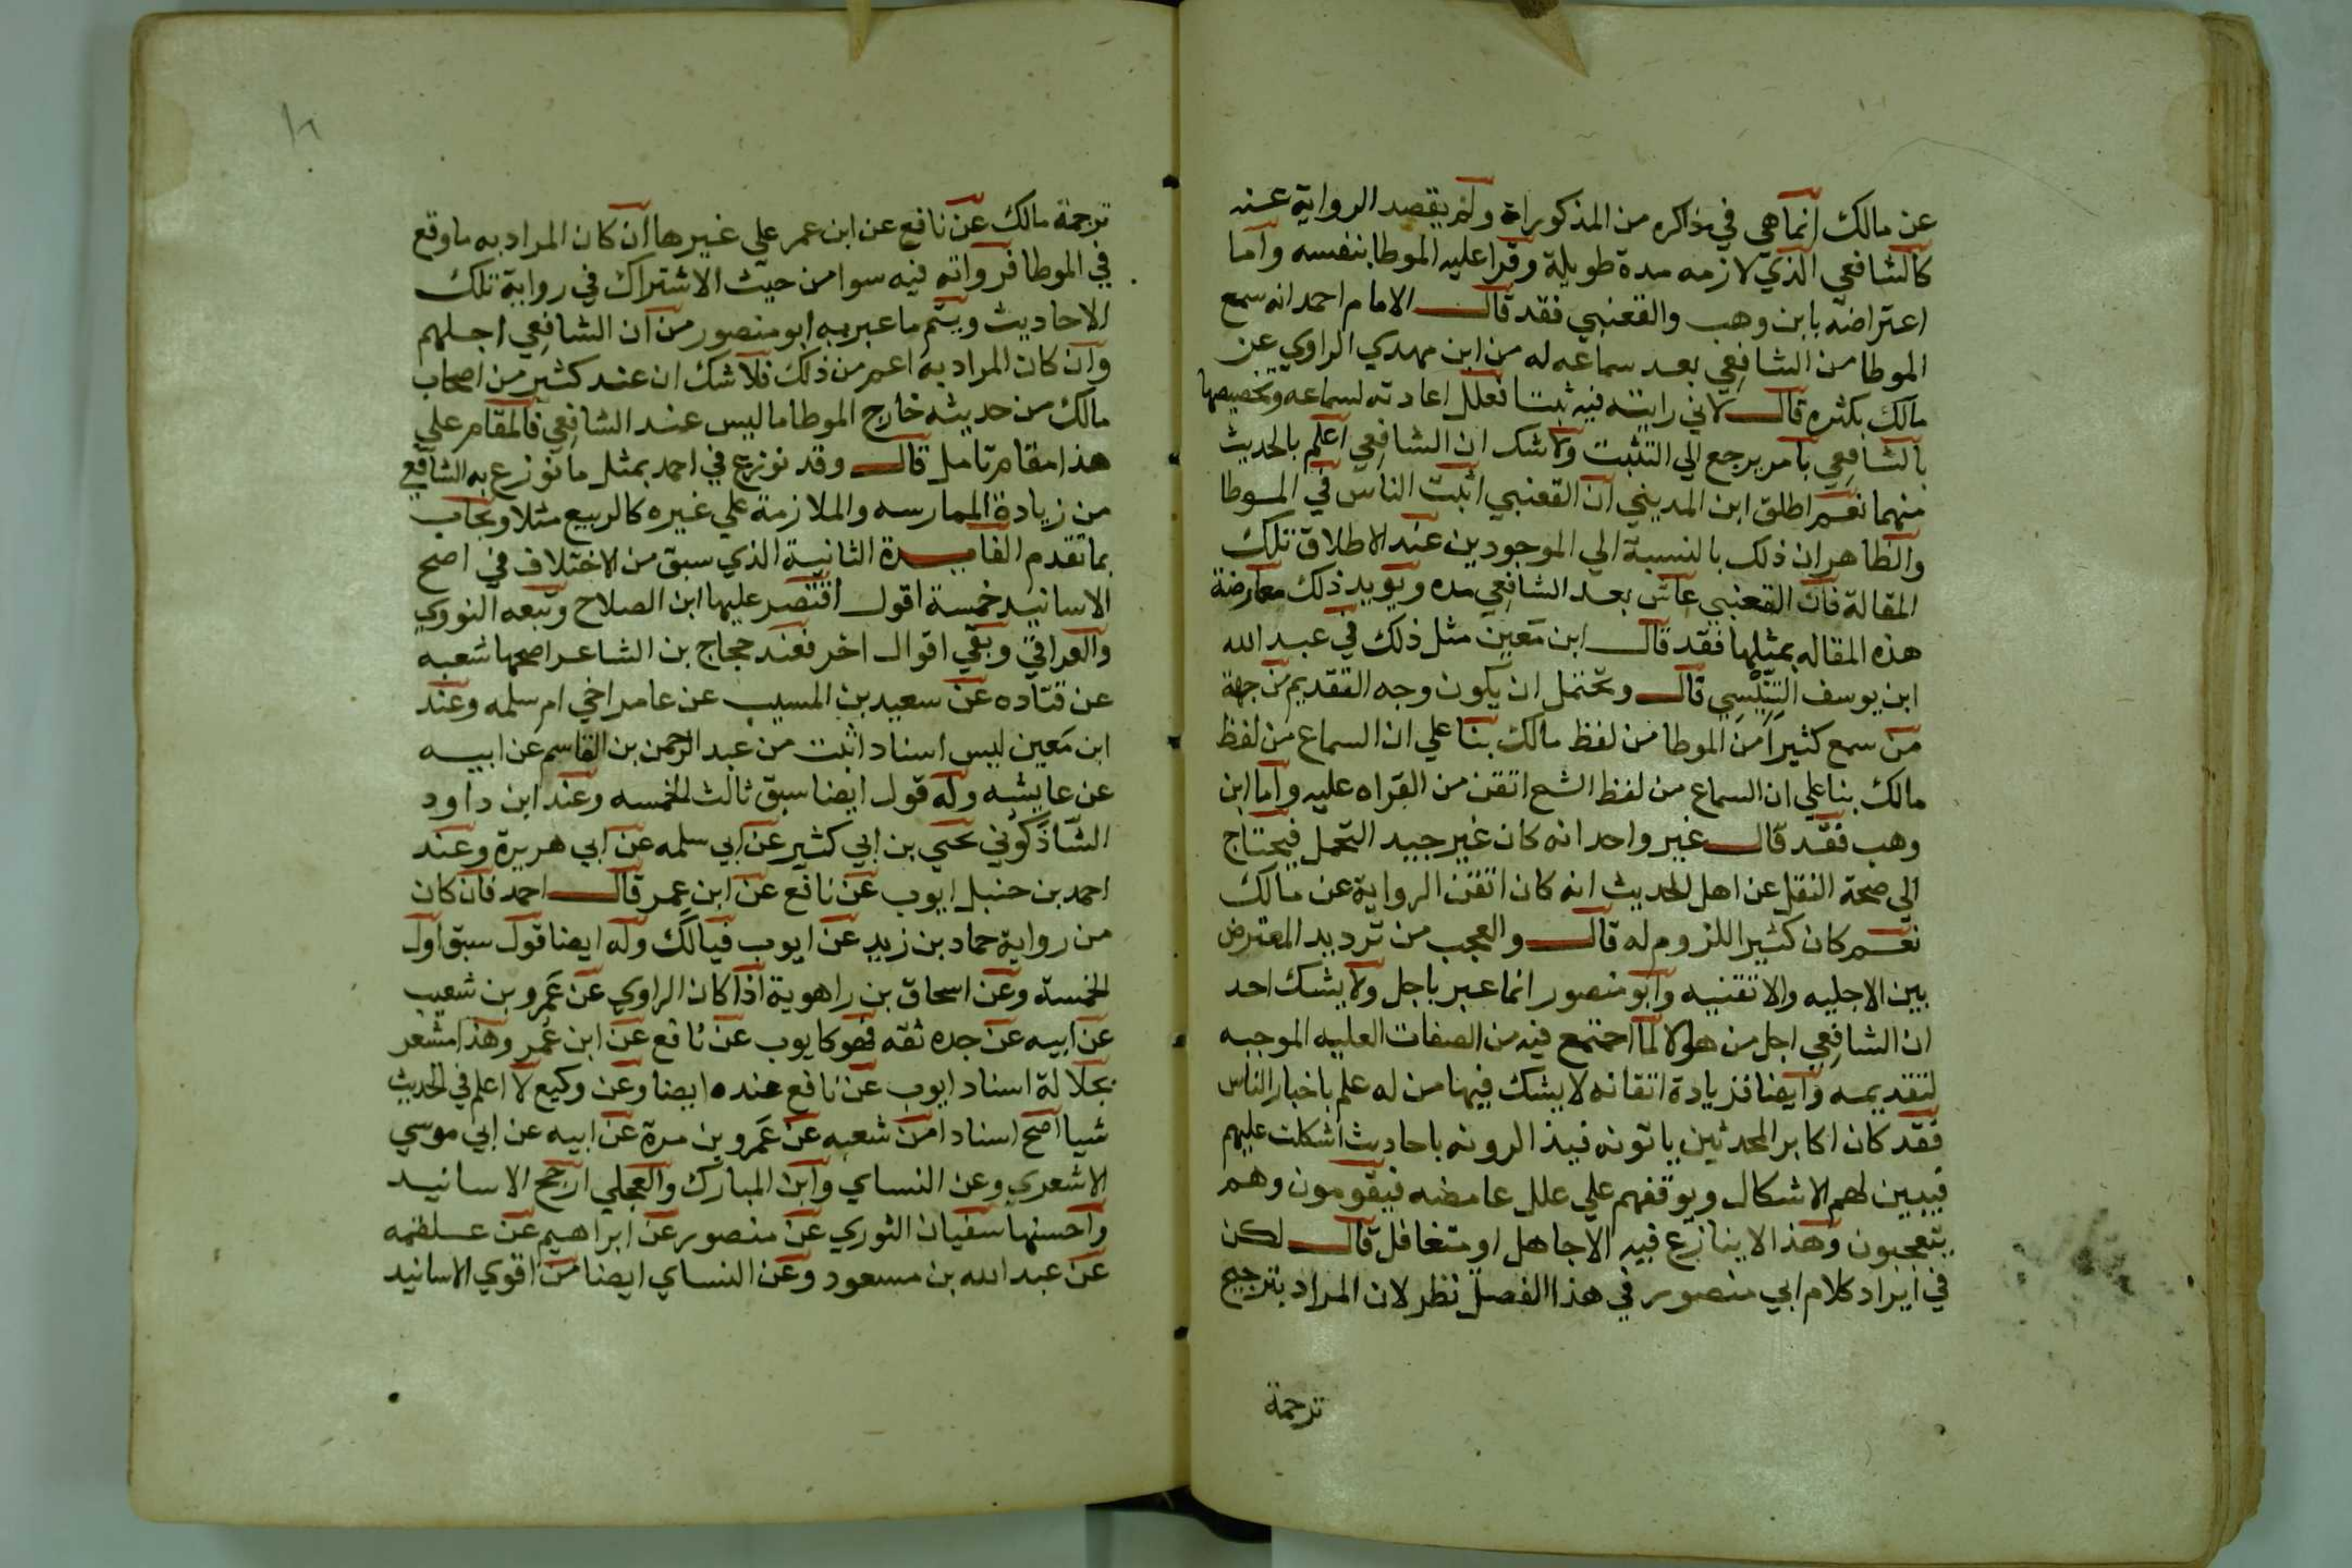 عن مالك انما هي في مذاكره من المذكوراة ولم يقصد الرواية عنه
كالشافعي الذي لازمه مدة طويلة وقرا عليه الموطا بنفسه واما
اعتراضه بابن وهب والقعنبي فقد قال الامام احمد انه سمع
الموطا من الشافعي بعد سماعه له من ابن مهدي الراوي عن
مالك بكثره قال لاني رايته فيه ثبتا فعلل اعادته لسماعه وتخصيصها
بالشافعي بامر يرجع الي التثبت ولا شك ان الشافعي اعلم بالحديث
منهما نعم اطلق ابن المديني ان القعنبي اثبت الناس في الموطا
والظاهر ان ذلك بالنسبة الي الموجودين عند الاطلاق تلك
المقالة فان القعنبي عاش بعد الشافعي مده ويويد ذلك معارضة
هذه المقاله بمثلها فقد قال ابن معين مثل ذلك في عبد الله
ابن يوسف التنيسي قال ويحتمل ان يكون وجه التقديم من جهة
من سمع كثيرا من الموطا من لفظ مالك بنا علي ان السماع من لفظ
مالك بنا علي ان السماع من لفظ الشح اتقن من القراه عليه واما ابن
وهب فقد قال غير واحد انه كان غير جيد التحمل فيحتاج
الي صحة النقل عن اهل الحديث انه كان اتقن الرواية عن مالك
نعم كان كثير اللزوم له قال والعجب من ترديد المعترض
بين الاجليه والاتقنيه وابو منصور انما عبر باجل ولا يشك احد
ان الشافعي اجل من هولا لما اجتمع فيه من الصفات العليه الموجبه
لتقديمه وايضا فزيادة اتقانه لا يشك فيها من له علم باخبار الناس
فقد كان اكابر المحدثين ياتونه فيذالرونه باحاديث اشكلت عليهم
فيبين لهم الاشكال ويوقفهم علي علل غامضه فيقومون وهم
يتعجبون وهذا لا ينازع فيه الا جاهل او متغافل قال لكن
في ايراد كلام ابي منصور في هذا الفصل نظر لان المراد بترجيح
ترجمة
ترجمة مالك عن نافع عن ابن عمر علي غيرها ان كان المراد به ما وقع
في الموطا فرواته فيه سوا من حيث الاشتراك في رواية تلك
الاحاديث ويتم ما عبر به ابو منصور من ان الشافعي اجلهم
وان كان المراد به اعم من ذلك فلا شك ان عند كثير من اصحاب
مالك من حديثه خارج الموطا ما ليس عند الشافعي فالمقام علي
هذا مقام تامل قال وقد نوزع في احمد بمثل ما نوزع به الشافعي
من زيادة الممارسه والملازمة علي غيره كالربيع مثلا ويجاب
بما تقدم الفايدة الثانية الذي سبق من الاختلاف في اصح
الاسانيد خمسة اقول اقتصر عليها ابن الصلاح وتبعه النووي
والعراقي وبقي اقوال اخر فعند حجاج بن الشاعر اصحها شعبه
عن قتاده عن سعيد بن المسيب عن عامر اخي ام سلمه وعند
ابن معين ليس اسناد اثبت من عبد الرحمن بن القاسم عن ابيه
عن عايشه وله قول ايضا سبق ثالث الخمسه وعند ابن داود
الشاذكوني يحيي بن ابي كثير عن ابي سلمه عن ابي هريرة وعند
احمد بن حنبل ايوب عن نافع عن ابن عمر قال احمد فان كان
من رواية حماد بن زيد عن ايوب فيالك وله ايضا قول سبق اول
الخمسة وعن اسحاق بن راهوية اذا كان الراوي عن عمرو بن شعيب
عن ابيه عن جده ثقه فهو كايوب عن نافع عن ابن عمر وهذا مشعر
بجلالة اسناد ايوب عن نافع عنده ايضا وعن وكيع لا اعلم في الحديث
شيا اصح اسنادا من شعبه عن عمرو بن مرة عن ابيه عن ابي موسي
الاشعري وعن النساي وابن المبارك والعجلي ارجح الاسانيد
واحسنها سفيان الثوري عن منصور عن ابراهيم عن علقمه
عن عبد الله بن مسعود وعن النساي ايضا من اقوي الاسانيد